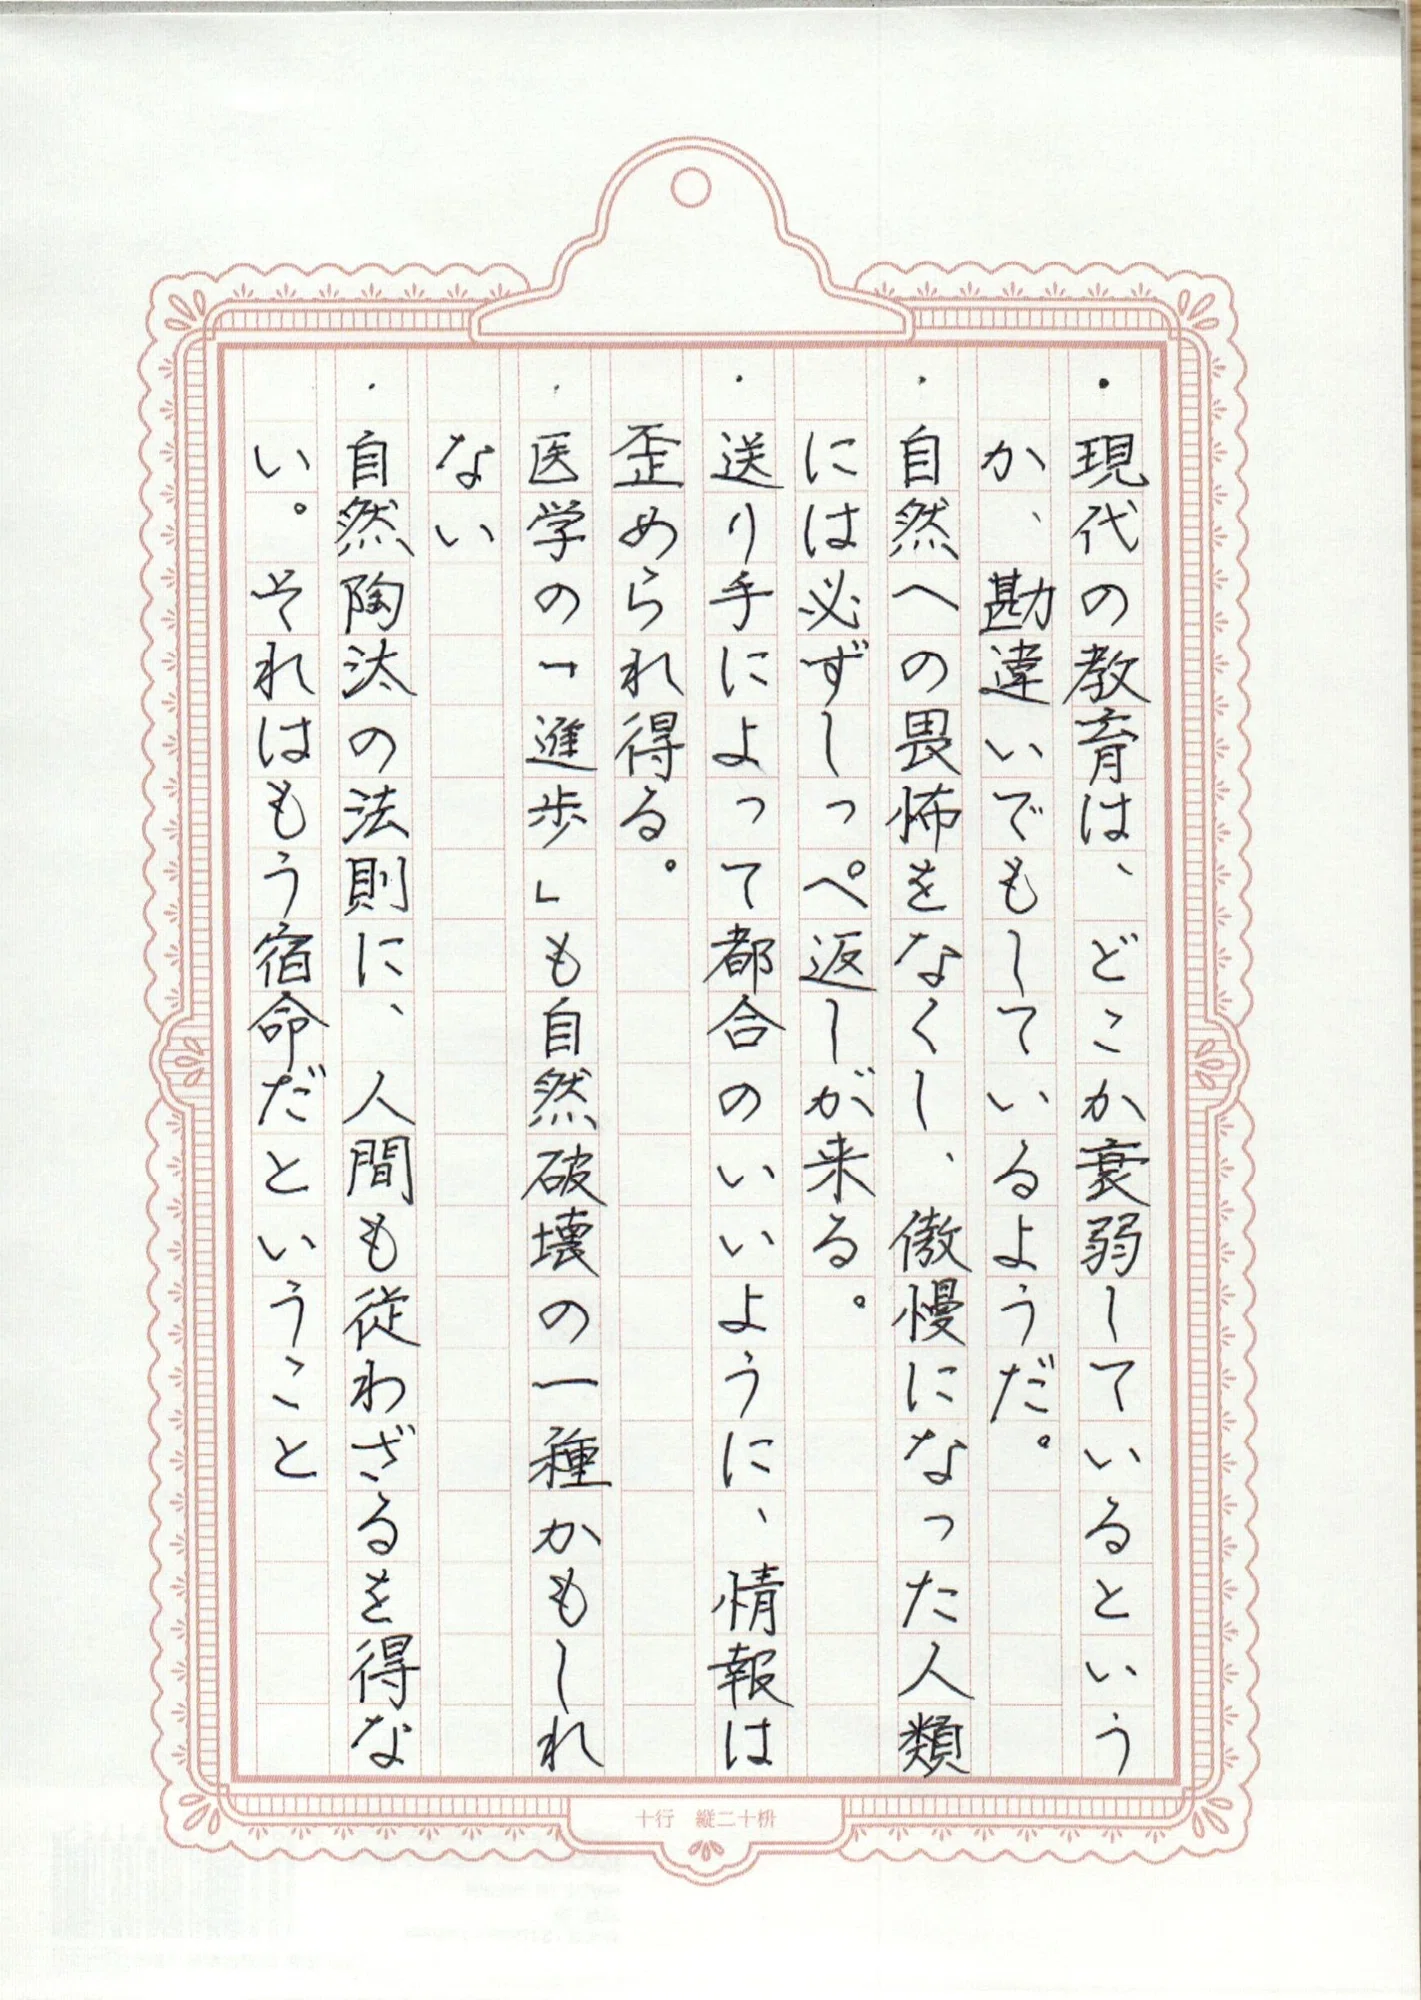 ・現代の教育は、どこか衰弱しているという
か、勘違いでもしているようだ。
・自然への畏怖をなくし、傲慢になった人類
には必ずしっぺ返しが来る。
・送り手によって都合のいいように、情報は
歪められ得る。
・医学の「進歩」も自然破壊の一種かもしれ
ない
・自然陶汰の法則に、人間も従わざるを得な
い。それはもう宿命だということ
十行 縦二十枡